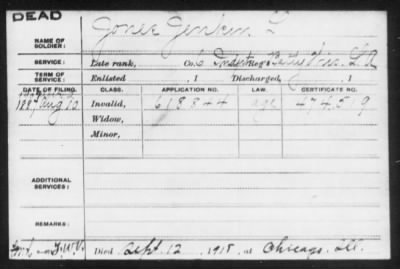 DEAD
NAME OF SOLDIER: Jones Jenkin L
SERVICE: Late rank, Co. 6 Indpt Reg't Batty Wis. L.A
TERM OF SERVICE: Enlisted , 1 Discharged , 1
DATE OF FILING. CLASS. APPLICATION NO. LAW. CERTIFICATE NO.
188 Aug 20 Invalid, 618844 age 474.519
Widow,
Minor,
ADDITIONAL SERVICES:
REMARKS:
Died Sept. 12, 1918, at Chicago. Ill.